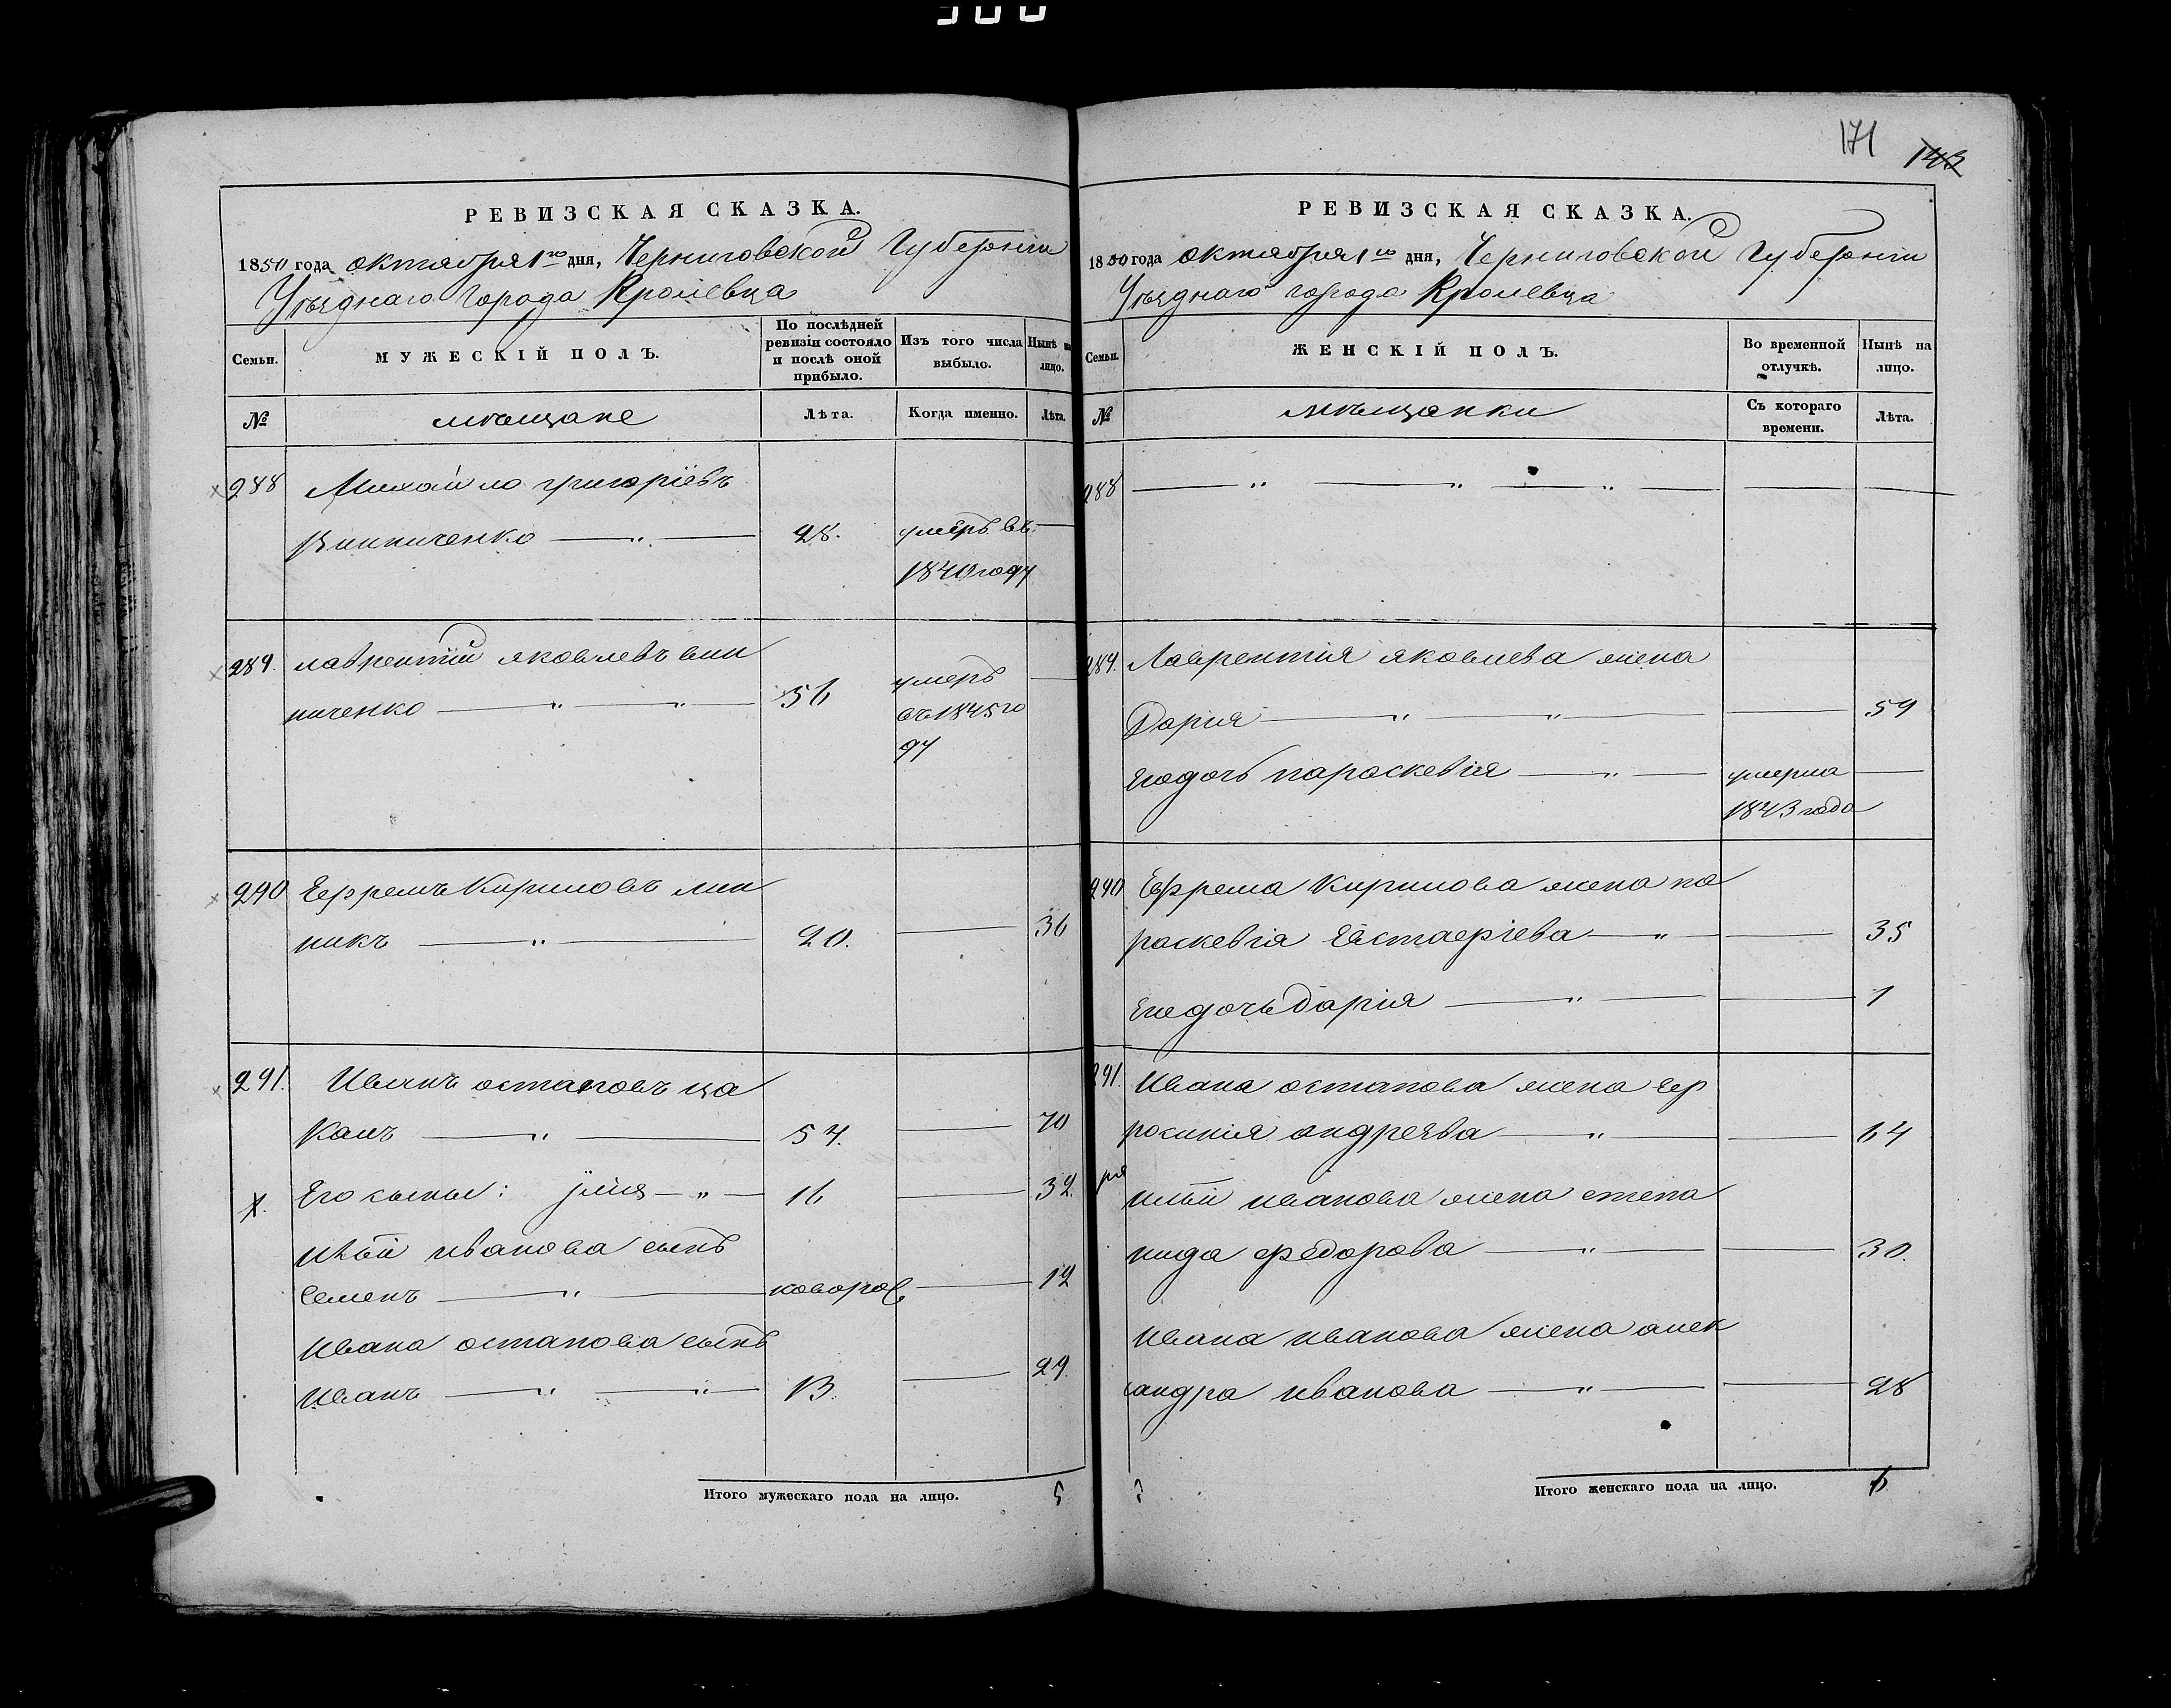 171 143
РЕВИЗСКАЯ СКАЗКА.
1850 года октября 1го дня, Черниговской Губернии
Уезднаго города Кролевца
Семьи. МУЖЕСКІЙ ПОЛЪ. По послѣдней ревизіи состояло и послѣ оной прибыло. Изъ того числа выбыло. Нынѣ на лицо.
№ мѣщане Лѣта. Когда именно. Лѣта.
288 Михайло григоріевъ
Винниченко — „ — 28. умеръ въ —
1840 году
289. лаврентій яковлевъ вин
ниченко — „ — „ — 56 умеръ —
въ 1845 го
ду
290 Ефремъ Кириловъ лин
никъ — „ — 20. — 36
291. Иванъ остаповъ ца
Канъ — „ — 54. — 70
Его сыны: — „ — 16 — 32.
иванова сынъ
Семенъ — „ — новорож — 12
Ивана остапова сынъ
Иванъ — „ — „ — 13. — 29.
Итого мужескаго пола на лицо. 5
РЕВИЗСКАЯ СКАЗКА.
1850 года октября 1го дня, Черниговской Губернии
Уезднаго города Кролевца
Семьи. ЖЕНСКІЙ ПОЛЪ. Во временной отлучкѣ. Нынѣ на лицо.
№ мѣщанки Съ котораго времени. Лѣта.
288 — „ — „ — „ — — —
289. Лаврентия яковлева жена
Дария — „ — „ — — 59
Егодочь параскевія — „ — умерла —
1843 года
290 Ефрема Кирилова жена па
раскевія Евстафіева — „ — — 35
Егодочь Дарія — „ — — 1
291. Ивана остапова жена Еф
росинія андреева — „ — — 64
иванова жена степа
нида федорова — „ — — 30.
Ивана иванова жена алек
сандра иванова — „ — — 28
Итого женскаго пола на лицо. 6